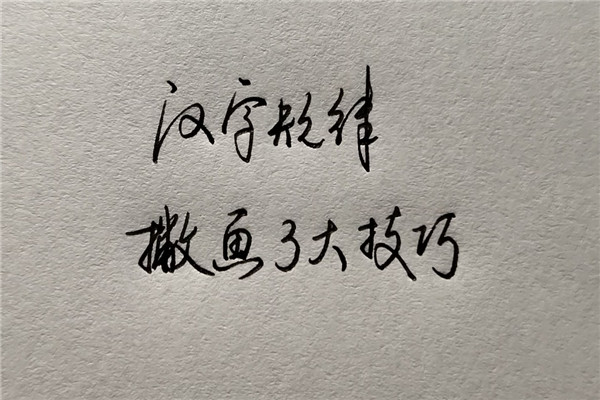 汉字规律
撇画3大技巧